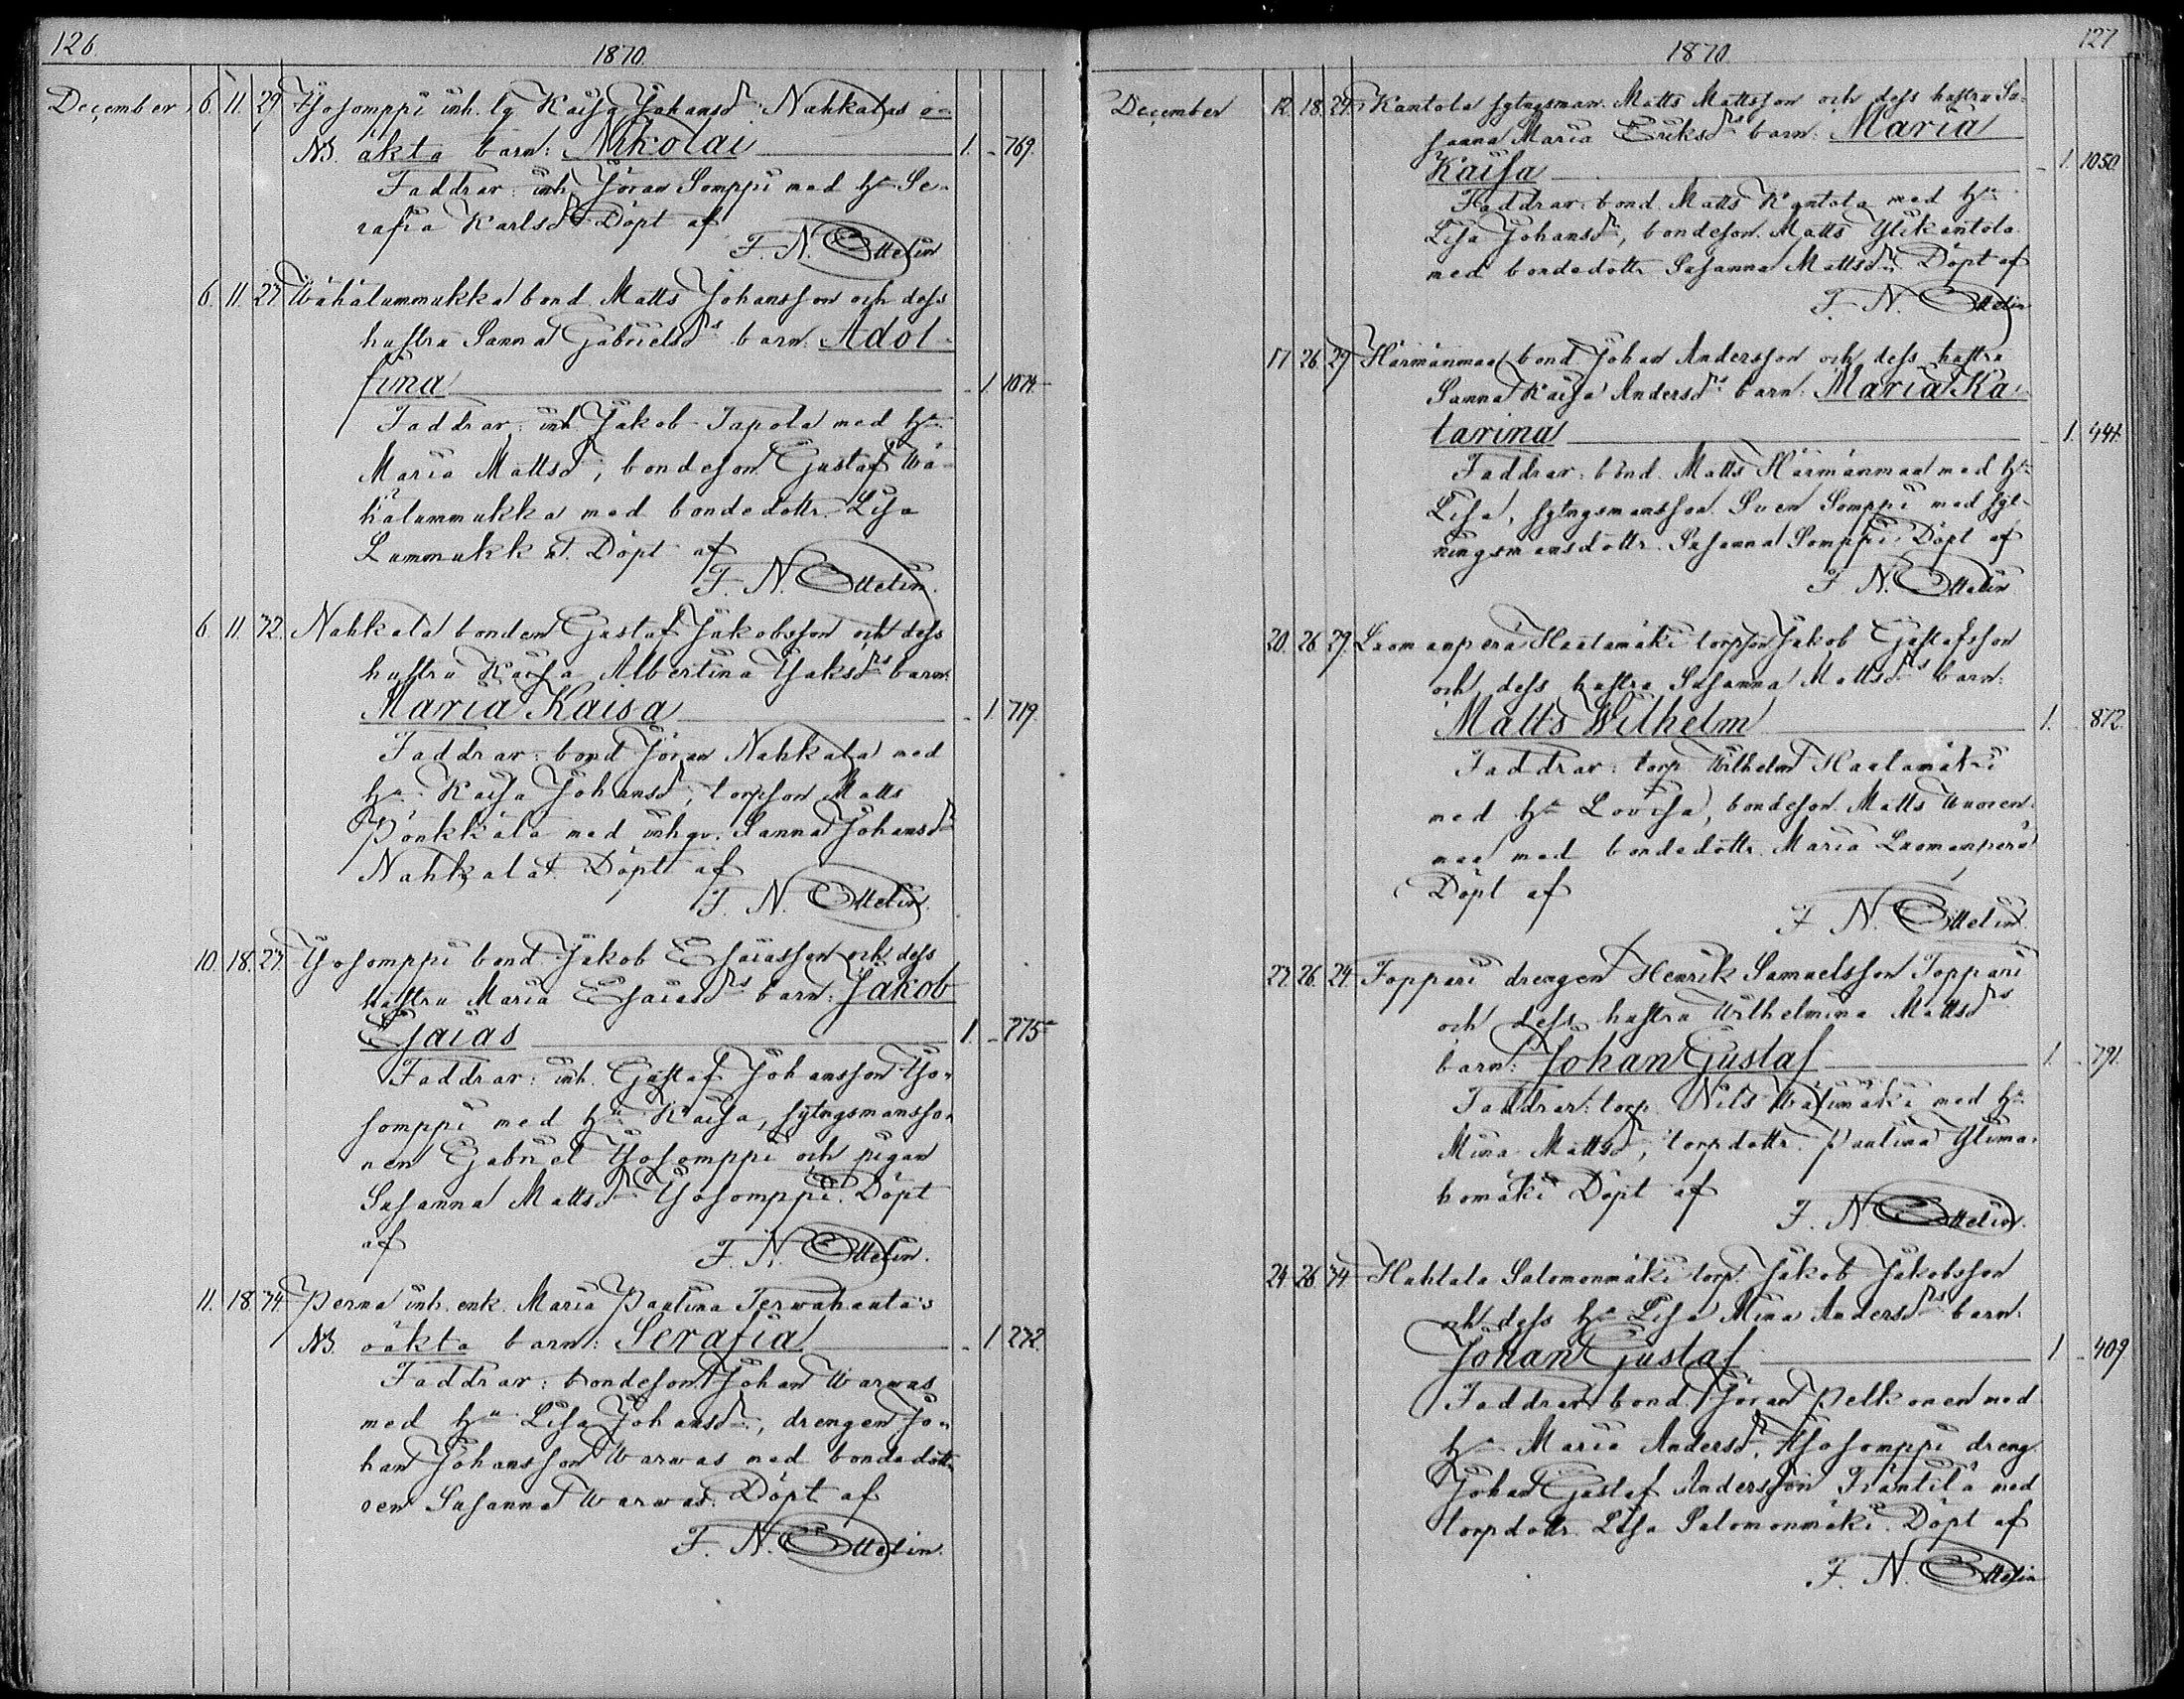 126.
1870.
December 6. 11. 29. Yösomppi inh. lg Kaisa Johansdr Nahkalas o-
NB. äkta barn: Nikolai 1. - 769.
Faddrar: inh. Jöran Somppi med ha Se-
rafia Karlsdr Döpt af
F. N. Ottelin
6. 11. 27. Wähälummukka bond. Matts Johansson och dess
hustru Sanna Gabrielsdrs barn: Adol-
fina - 1. 1074
Faddrar: inh. Jakob Tapola med ha
Maria Mattsdr, bondeson Gustaf Wä-
hälummukka med bondedottr. Lisa
Lummukka. Döpt af
F. N. Ottelin.
6. 11. 32. Nahkala bonden Gustaf Jakobsson och dess
hustru Kaisa Albertina Isaksdrs barn:
Maria Kaisa - 1. 719.
Faddrar: bond Jöran Nahkala med
ha Kaisa Johansdr, torpson Matts
Pönkkälä med inhqv. Sanna Johansdr
Nahkala. Döpt af
F. N. Ottelin.
10. 18. 27. Yösomppi bond Jakob Esaiasson och dess
hustru Maria Esaiasdrs barn: Jakob
Esaias 1. - 775
Faddrar: inh. Gustaf Johansson Yö-
somppi med hu Kaisa, sytngsmansso-
nen Gabriel Yösomppi och pigan
Susanna Mattsdr Yösomppi. Döpt
af
F. N. Ottelin.
11. 18. 34 Perna inh. enk. Maria Paulina Terwahauta's
NB. oäkta barn: Serafia - 1 272.
Faddrar: bondeson Johan Warwas
med hu Lisa Johansdr, drengen Jo-
han Johansson Warwas med bondedött-
ren Susanna Warwas. Döpt af
F. N. Ottelin.
127
1870
December 12. 18. 24. Kantola sytngsman. Matts Mattsson och dess hustru Su-
sanna Maria Eriksdrs barn: Maria
Kaisa - 1. 1050.
Faddrar: bond. Matts Kantola med ha
Lisa Johansdr, bondeson. Matts Ylikantola
med bondedottr Susanna Mattsdr. Döpt af
F. N. Ottelin
17 26. 29 Härmänmaa bond Johan Andersson och dess hustru
Sanna Kaisa Andersdrs barn: Maria Ka-
tarina - 1. 441.
Faddrar: bond. Matts Härmänmaa med ha
Lisa, sytngsmansson Sven Somppi med syt-
ningsmansdottr. Susanna Somppi. Döpt af
F. N. Ottelin
20. 26. 29. Luomanperä Haatamäki torpson Jakob Gustafsson
och dess hustru Susanna Mattsdrs barn:
Matts Wilhelm 1. 872.
Faddrar: torp Wilhelm Haatamäki
med ha Lovisa, bondeson Matts Wuoren-
maa med bondedottr. Maria Luomanperä
Döpt af
F. N. Ottelin
23. 26. 24. Toppari drengen Henrik Samuelsson Toppari
och dess hustru Wilhelmina Mattsdrs
barn: Johan Gustaf 1. - 791.
Faddrar: torp. Nils Wälimäki med ha
Mina Mattsdr, torpdottr. Paulina Ylima-
homäki Döpt af
F. N. Ottelin.
24 26 34 Huhtala Salomonmäki torp. Jakob Jakobsson
och dess ha Lisa Mina Andersdrs barn:
Johan Gustaf 1 - 409
Faddrar: bond. Jöran Pelkonen med
ha Maria Andersdr, Yösomppi dreng
Johan Gustaf Andersson Träntilä med
torpdottr. Lisa Salomonmäki. Döpt af
F. N. Ottelin